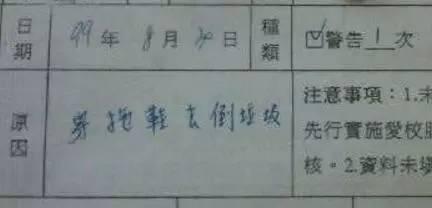 日期 99年8月30日 種類 ☑警告1次
原因 穿拖鞋去倒垃圾 注意事項：1.未
先行實施愛校服
核。2.資料未填